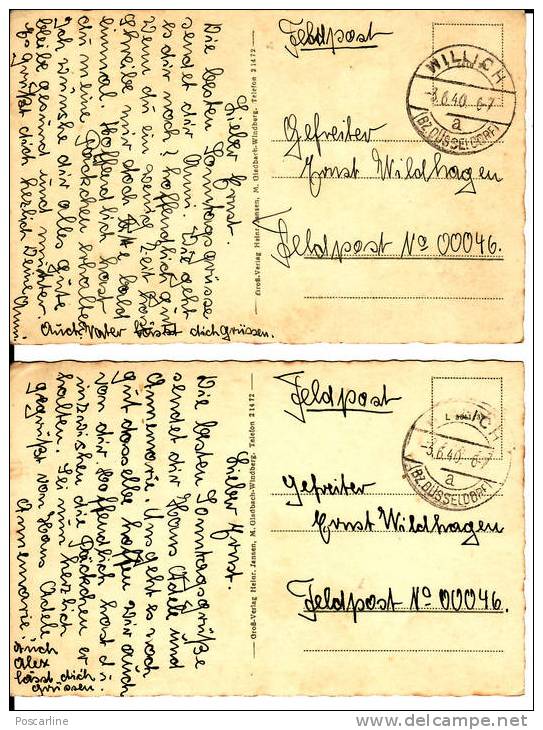 Feldpost
WILLICH
-3.6.40. 6-7
a
(BZ. DÜSSELDORF)
Gefreiter
Ernst Wildhagen
Feldpost No 00046.
Groß-Verlag Heinr. Jansen, M. Gladbach-Windberg. Telefon 21472
Lieber Ernst.
Die besten Sonntagsgrüsse
sendet dir Anni. Wie geht
es dir noch? hoffentlich gut
Wenn du ein wenig Zeit hast
schreibe mir doch bitte bald
einmal. Hoffentlich hast
du meine Päckchen erhalten
Ich wünsche dir alles Gute
bleibe gesund und munter.
Es grüßt dich herzlich Deine Anni.
Auch Vater lässt dich grüssen.
Feldpost
-3.6.40. 6-7
a
(BZ. DÜSSELDORF)
Gefreiter
Ernst Wildhagen
Feldpost No 00046.
Groß-Verlag Heinr. Jansen, M. Gladbach-Windberg. Telefon 21472
Lieber Ernst.
Die besten Sonntagsgrüße
sendet dir Hans Adele und
Annemarie. Uns geht es noch
gut dasselbe hoffen wir auch
von dir. Hoffentlich hast du
inzwischen die Päckchen er
halten. Sei nun herzlich
gegrüßt von Hans Adele
Annemarie
Auch
Alex
lässt dich
grüssen.
Poscarline
delcampe.net